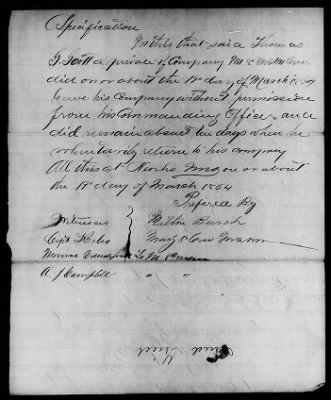 Specification
In this that said Thomas
G. Scott a private of Company
did on or about the 1st day of March 1864
leave his company without permission
from his Commanding Officer and
did remain absent ten days when he
voluntarily return to his company
All this at Neosho Mo on or about
the 1st day of March 1864
Prefered By
Witnesses Milton Burch
Capt Kelso Maj 8 Cav M.S.M.
A. J. Campbell " "